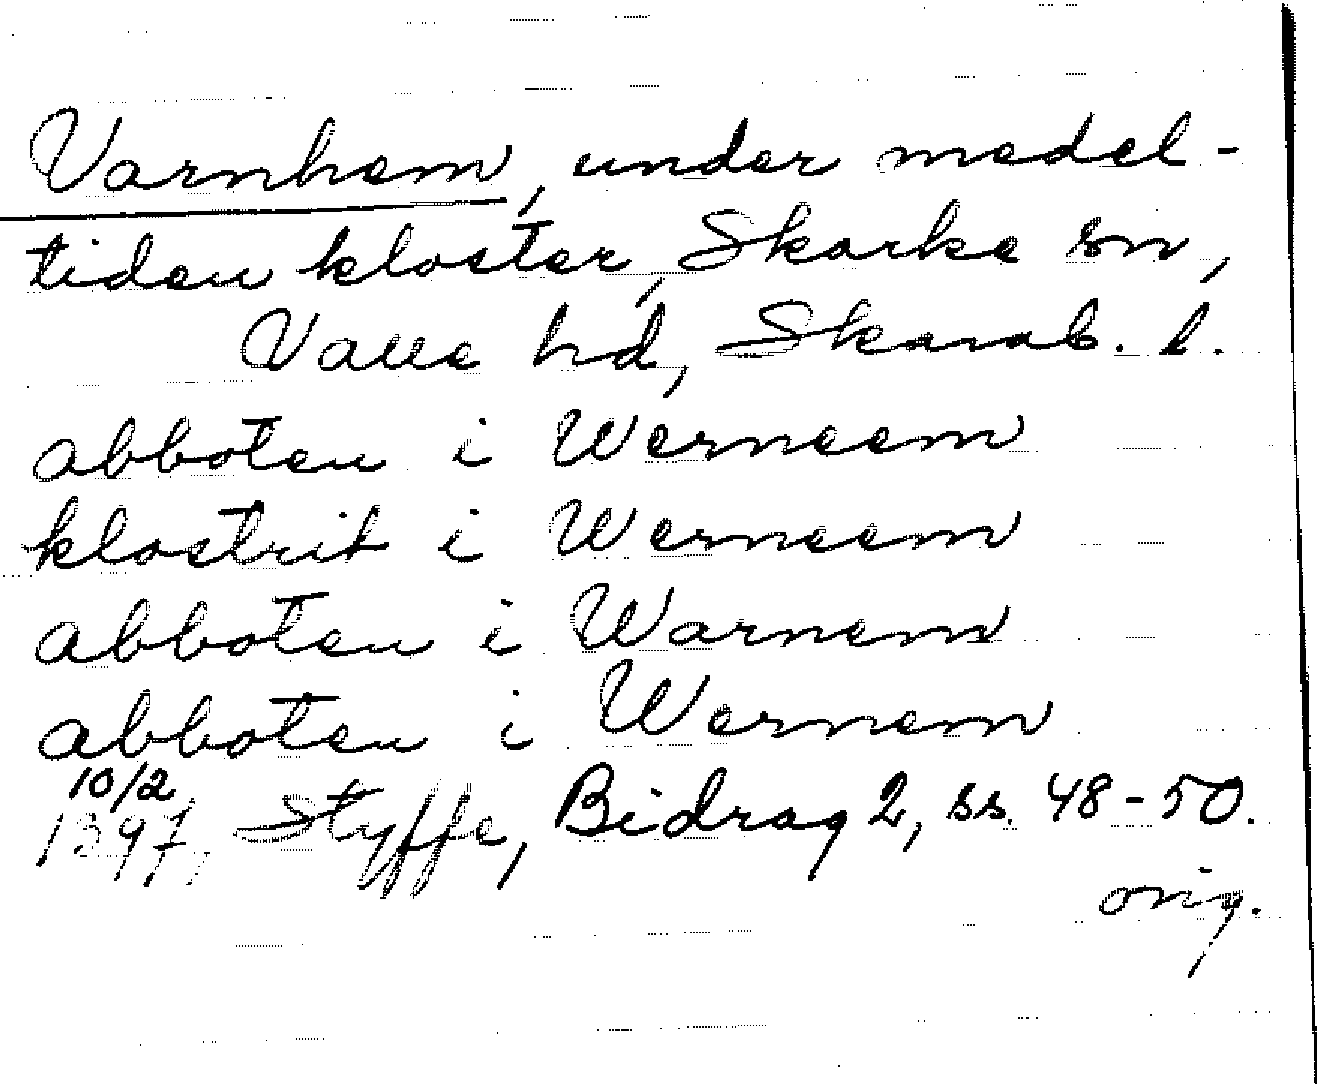 Varnhem, under medel-
tiden kloster, Skarke sn,
Valle hd, Skarab. l.
abboten i Werneem
klostrit i Werneem
abboten i Warnem
abboten i Wernem
10/2
1397, Styffe, Bidrag 2, ss. 48-50.
orig.